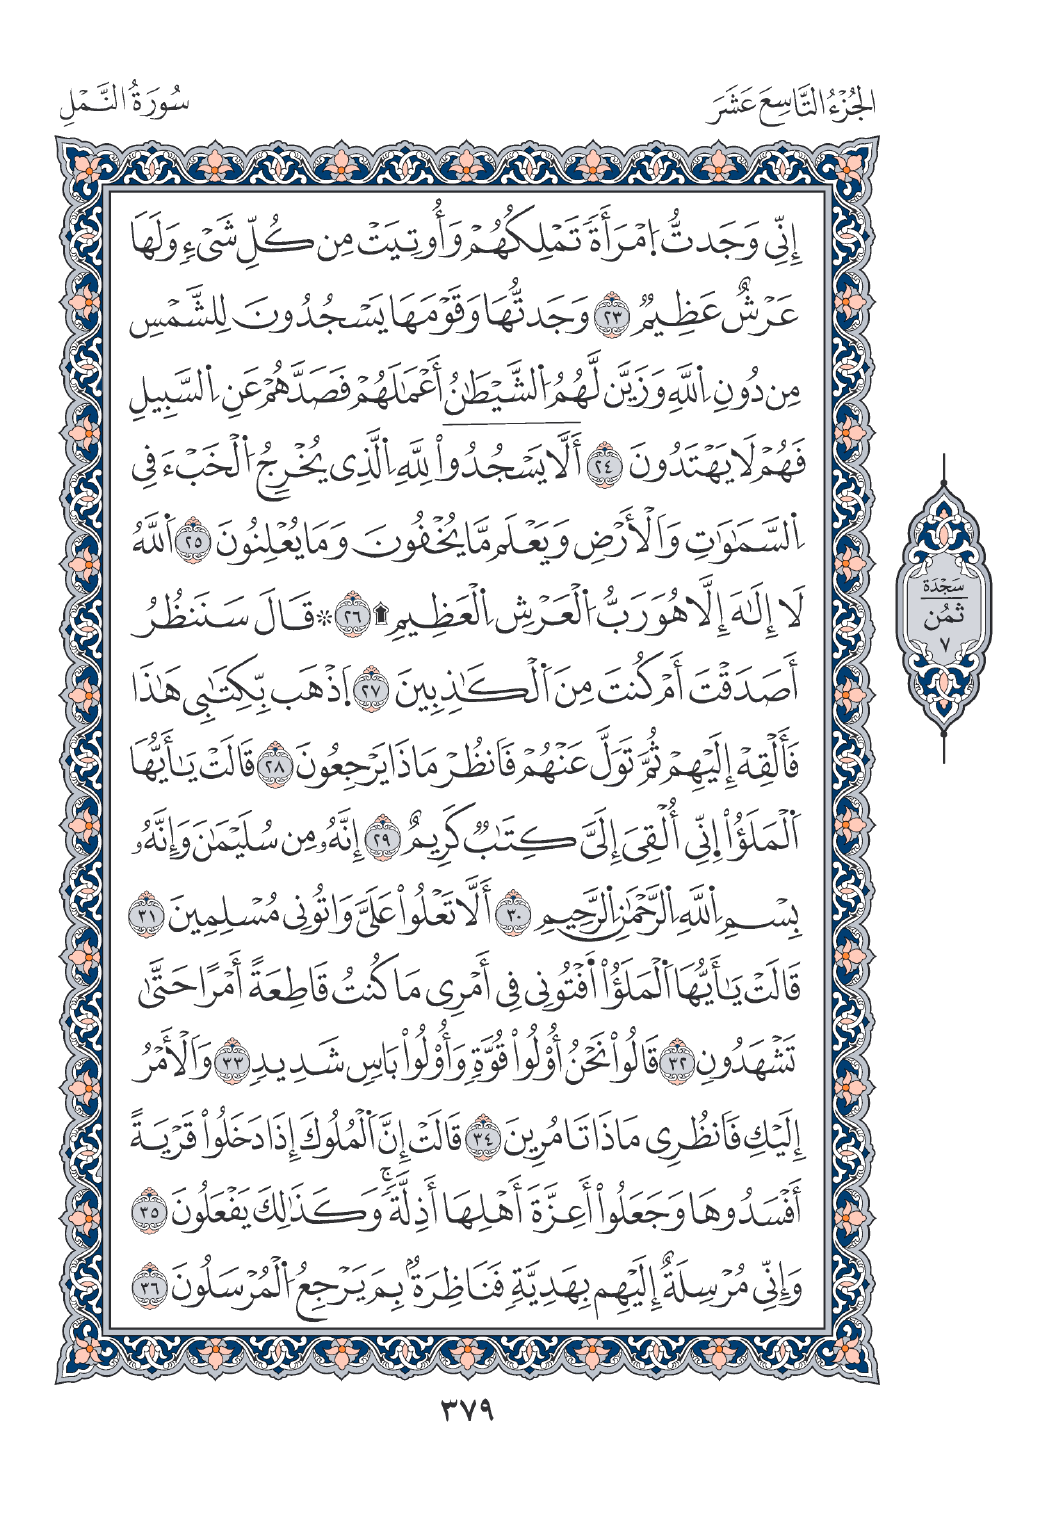 الجُزْءُ التَّاسِعَ عَشَرَ
سُورَةُ النَّمْلِ
إِنِّي وَجَدتُّ اُ۪مْرَأَةٗ تَمْلِكُهُمْ وَأُوتِيَتْ مِن كُلِّ شَيْءٖ وَلَهَا
عَرْشٌ عَظِيمٞ ٢٣ وَجَدتُّهَا وَقَوْمَهَا يَسْجُدُونَ لِلشَّمْسِ
مِن دُونِ اِ۬للَّهِ وَزَيَّن لَّهُمُ اُ۬لشَّيْطَٰنُ أَعْمَٰلَهُمْ فَصَدَّهُمْ عَنِ اِ۬لسَّبِيلِ
فَهُمْ لَا يَهْتَدُونَ ٢٤ أَلَّا يَسْجُدُواْ لِلَّهِ اِ۬لَّذِي يُخْرِجُ اُ۬لْخَبْءَ فِي
اِ۬لسَّمَٰوَٰتِ وَالْأَرْضِ وَيَعْلَم مَّا يُخْفُونَ وَمَا يُعْلِنُونَ ٢٥ اَ۬للَّهُ
لَا إِلَٰهَ إِلَّا هُوَ رَبُّ اُ۬لْعَرْشِ اِ۬لْعَظِيمِ ۩ ٢٦ ۞ قَالَ سَنَنظُرُ
أَصَدَقْتَ أَمْ كُنتَ مِنَ اَ۬لْكَٰذِبِينَ ٢٧ اَ۪ذْهَب بِّكِتَٰبِي هَٰذَا
فَأَلْقِهْ إِلَيْهِمْ ثُمَّ تَوَلَّ عَنْهُمْ فَانظُرْ مَاذَا يَرْجِعُونَ ٢٨ قَالَتْ يَٰأَيُّهَا
اَ۬لْمَلَؤُاْ اِ۪نِّي أُلْقِيَ إِلَيَّ كِتَٰبٞ كَرِيمٌ ٢٩ إِنَّهُۥ مِن سُلَيْمَٰنَ وَإِنَّهُۥ
بِسْمِ اِ۬للَّهِ اِ۬لرَّحْمَٰنِ اِ۬لرَّحِيمِ ٣٠ أَلَّا تَعْلُواْ عَلَيَّ وَاتُونِي مُسْلِمِينَ ٣١
قَالَتْ يَٰأَيُّهَا اَ۬لْمَلَؤُاْ اَ۬فْتُونِي فِي أَمْرِي مَا كُنتُ قَاطِعَةً أَمْرًا حَتَّىٰ
تَشْهَدُونِ ٣٢ قَالُواْ نَحْنُ أُوْلُواْ قُوَّةٖ وَأُوْلُواْ بَاسٖ شَدِيدٖ ٣٣ وَالْأَمْرُ
إِلَيْكِ فَانظُرِي مَاذَا تَامُرِينَ ٣٤ قَالَتْ إِنَّ اَ۬لْمُلُوكَ إِذَا دَخَلُواْ قَرْيَةً
أَفْسَدُوهَا وَجَعَلُواْ أَعِزَّةَ أَهْلِهَا أَذِلَّةٗۚ وَكَذَٰلِكَ يَفْعَلُونَ ٣٥
وَإِنِّي مُرْسِلَةٌ إِلَيْهِم بِهَدِيَّةٖ فَنَاظِرَةُۢ بِمَ يَرْجِعُ اُ۬لْمُرْسَلُونَ ٣٦
سَجْدَة
ثُمُن
٧
٣٧٩